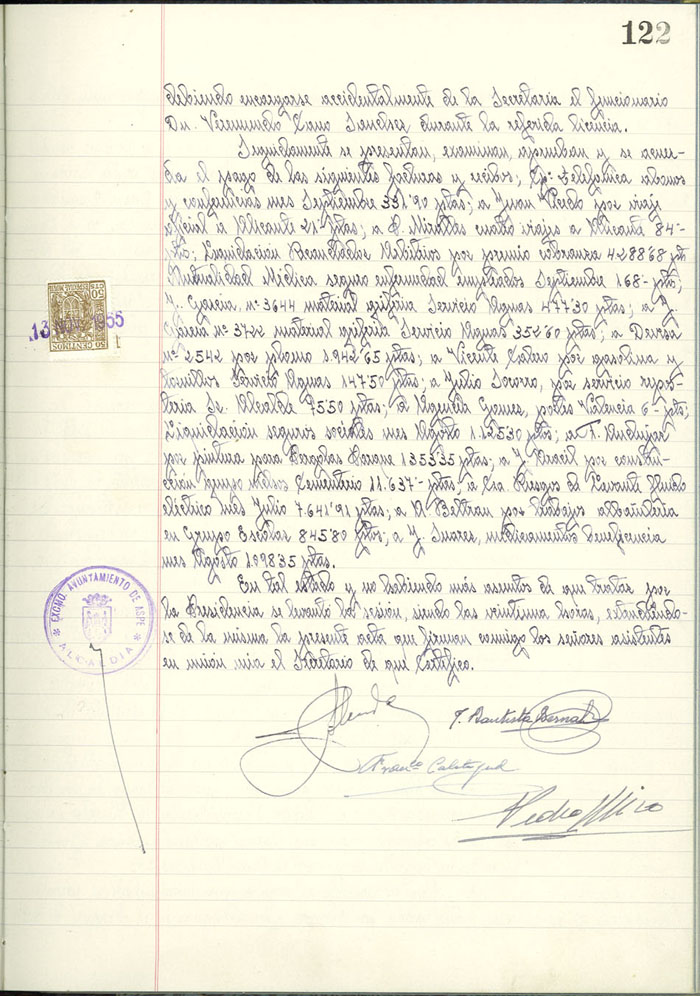 122
debiendo encargarse accidentalmente de la Secretaria el funcionario
Dn. Veremundo Cano Sanchez durante la referida licencia.
Seguidamente se presentan, examinan, aprueban y se acuer-
da el pago de las siguientes facturas y recibos; Cpª Telefonica abonos
y conferencias mes Septiembre 331'90 ptas; a Juan Vicedo por viaje
oficial a Alicante 21- ptas; a Miralles cuatro viajes a Alicante 84-
ptas; Liquidacion Recaudador Arbitrios por premio cobranza 4288'68 pts
Mutualidad Médica seguro enfermedad empleados Septiembre 168- ptas;
Garcia nº 3644 material griferia Servicio Aguas 477'30 ptas; a
Garcia nº 3722 material griferia Servicio Aguas 352'60 ptas; a Devesa
nº 2542 por plomo 1.942'65 ptas; a Vicente Calvo por gasolina y
tornillos Servicio Aguas 147'50 ptas; a Julio Socorro, por servicio repos-
teria Sr. Alcalde 75'50 ptas; a Agueda Gomes, portes Valencia 6- pts;
Liquidacion seguros sociales mes Agosto 1.125'30 ptas; a Andujar
por pintura para Pergolas Parque 1353'35 ptas; a J. Bracil por construc-
ción grupo nichos Cementerio 11.637- ptas; a Cia Riegos de Levante fluido
eléctrico mes Julio 7.641'91 ptas; a Beltran por trabajos albañileria
en Grupo Escolar 845'80 ptas; a J. Suares, medicamentos beneficencia
mes Agosto 1.098'35 ptas.
En tal estado y no habiendo más asuntos de que tratar por
la Presidencia se levantó la sesión, siendo las veintiuna horas, extendiendo-
se de la misma la presente acta que firman conmigo los señores asistentes
en unión mia el Secretario de que Certifico.
T. Bautista Bernal
Franco Calatayud
Pedro Mico
50 CTS ESPECIAL MOVIL
50 CENTIMOS
13 NOV 1955
EXCMO. AYUNTAMIENTO DE ASPE
ALCALDIA